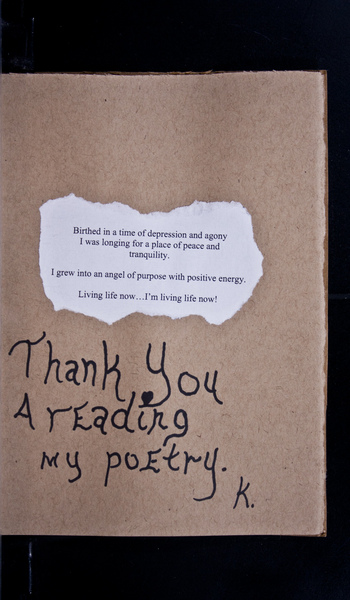 Birthed in a time of depression and agony
I was longing for a place of peace and
tranquility.
I grew into an angel of purpose with positive energy.
Living life now…I'm living life now!
Thank You
A rEading
my poEtry.
K.